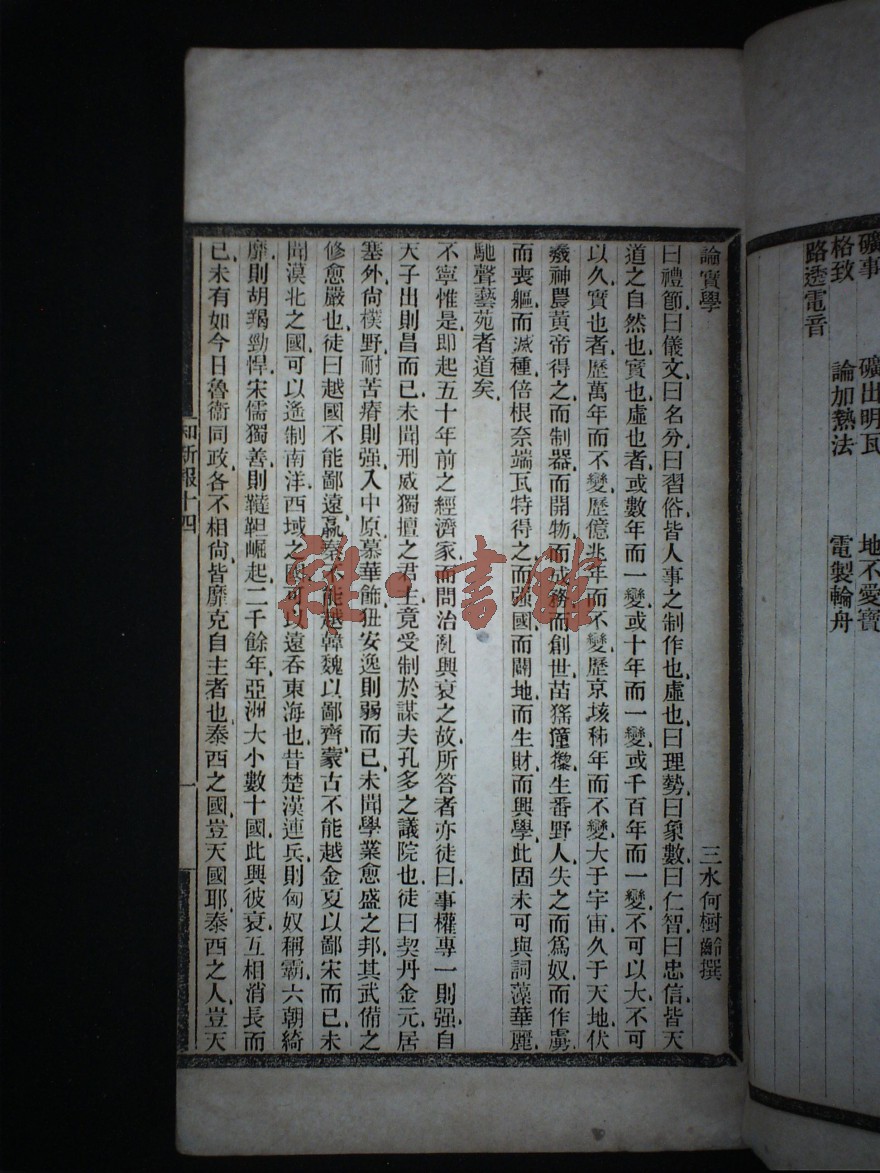 礦事　礦出明瓦　地不愛寶
格致　論加熱法　電製輪舟
路透電音
論實學　三水何樹齡撰
曰禮節曰儀文曰名分曰習俗皆人事之制作也虛也曰理勢曰象數曰仁智曰忠信皆天
道之自然也實也虛也者或數年而一變或十年而一變或千百年而一變不可以大不可
以久實也者歷萬年而不變歷億兆年而不變歷京垓秭年而不變大于宇宙久于天地伏
羲神農黃帝得之而制器而開物而成務而創世苗猺獞㺜生番野人失之而爲奴而作虜
而喪軀而滅種倍根奈端瓦特得之而强國而闢地而生財而興學此固未可與詞藻華麗
馳聲藝苑者道矣
不寧惟是即起五十年前之經濟家而問治亂興衰之故所答者亦徒曰事權專一則强自
天子出則昌而已未聞刑威獨擅之君主竟受制於謀夫孔多之議院也徒曰契丹金元居
塞外尙樸野耐苦瘠則强入中原慕華飾狃安逸則弱而已未聞學業愈盛之邦其武備之
修愈嚴也徒曰越國不能鄙遠嬴秦不能越韓魏以鄙齊蒙古不能越金夏以鄙宋而已未
聞漠北之國可以遙制南洋西域之國可以遠吞東海也昔楚漢連兵則匈奴稱霸六朝綺
靡則胡羯勁悍宋儒獨善則韃靼崛起二千餘年亞洲大小數十國此興彼衰互相消長而
已未有如今日魯衛同政各不相尙皆靡克自主者也泰西之國豈天國耶泰西之人豈天
知新報十四
一
雜·書館